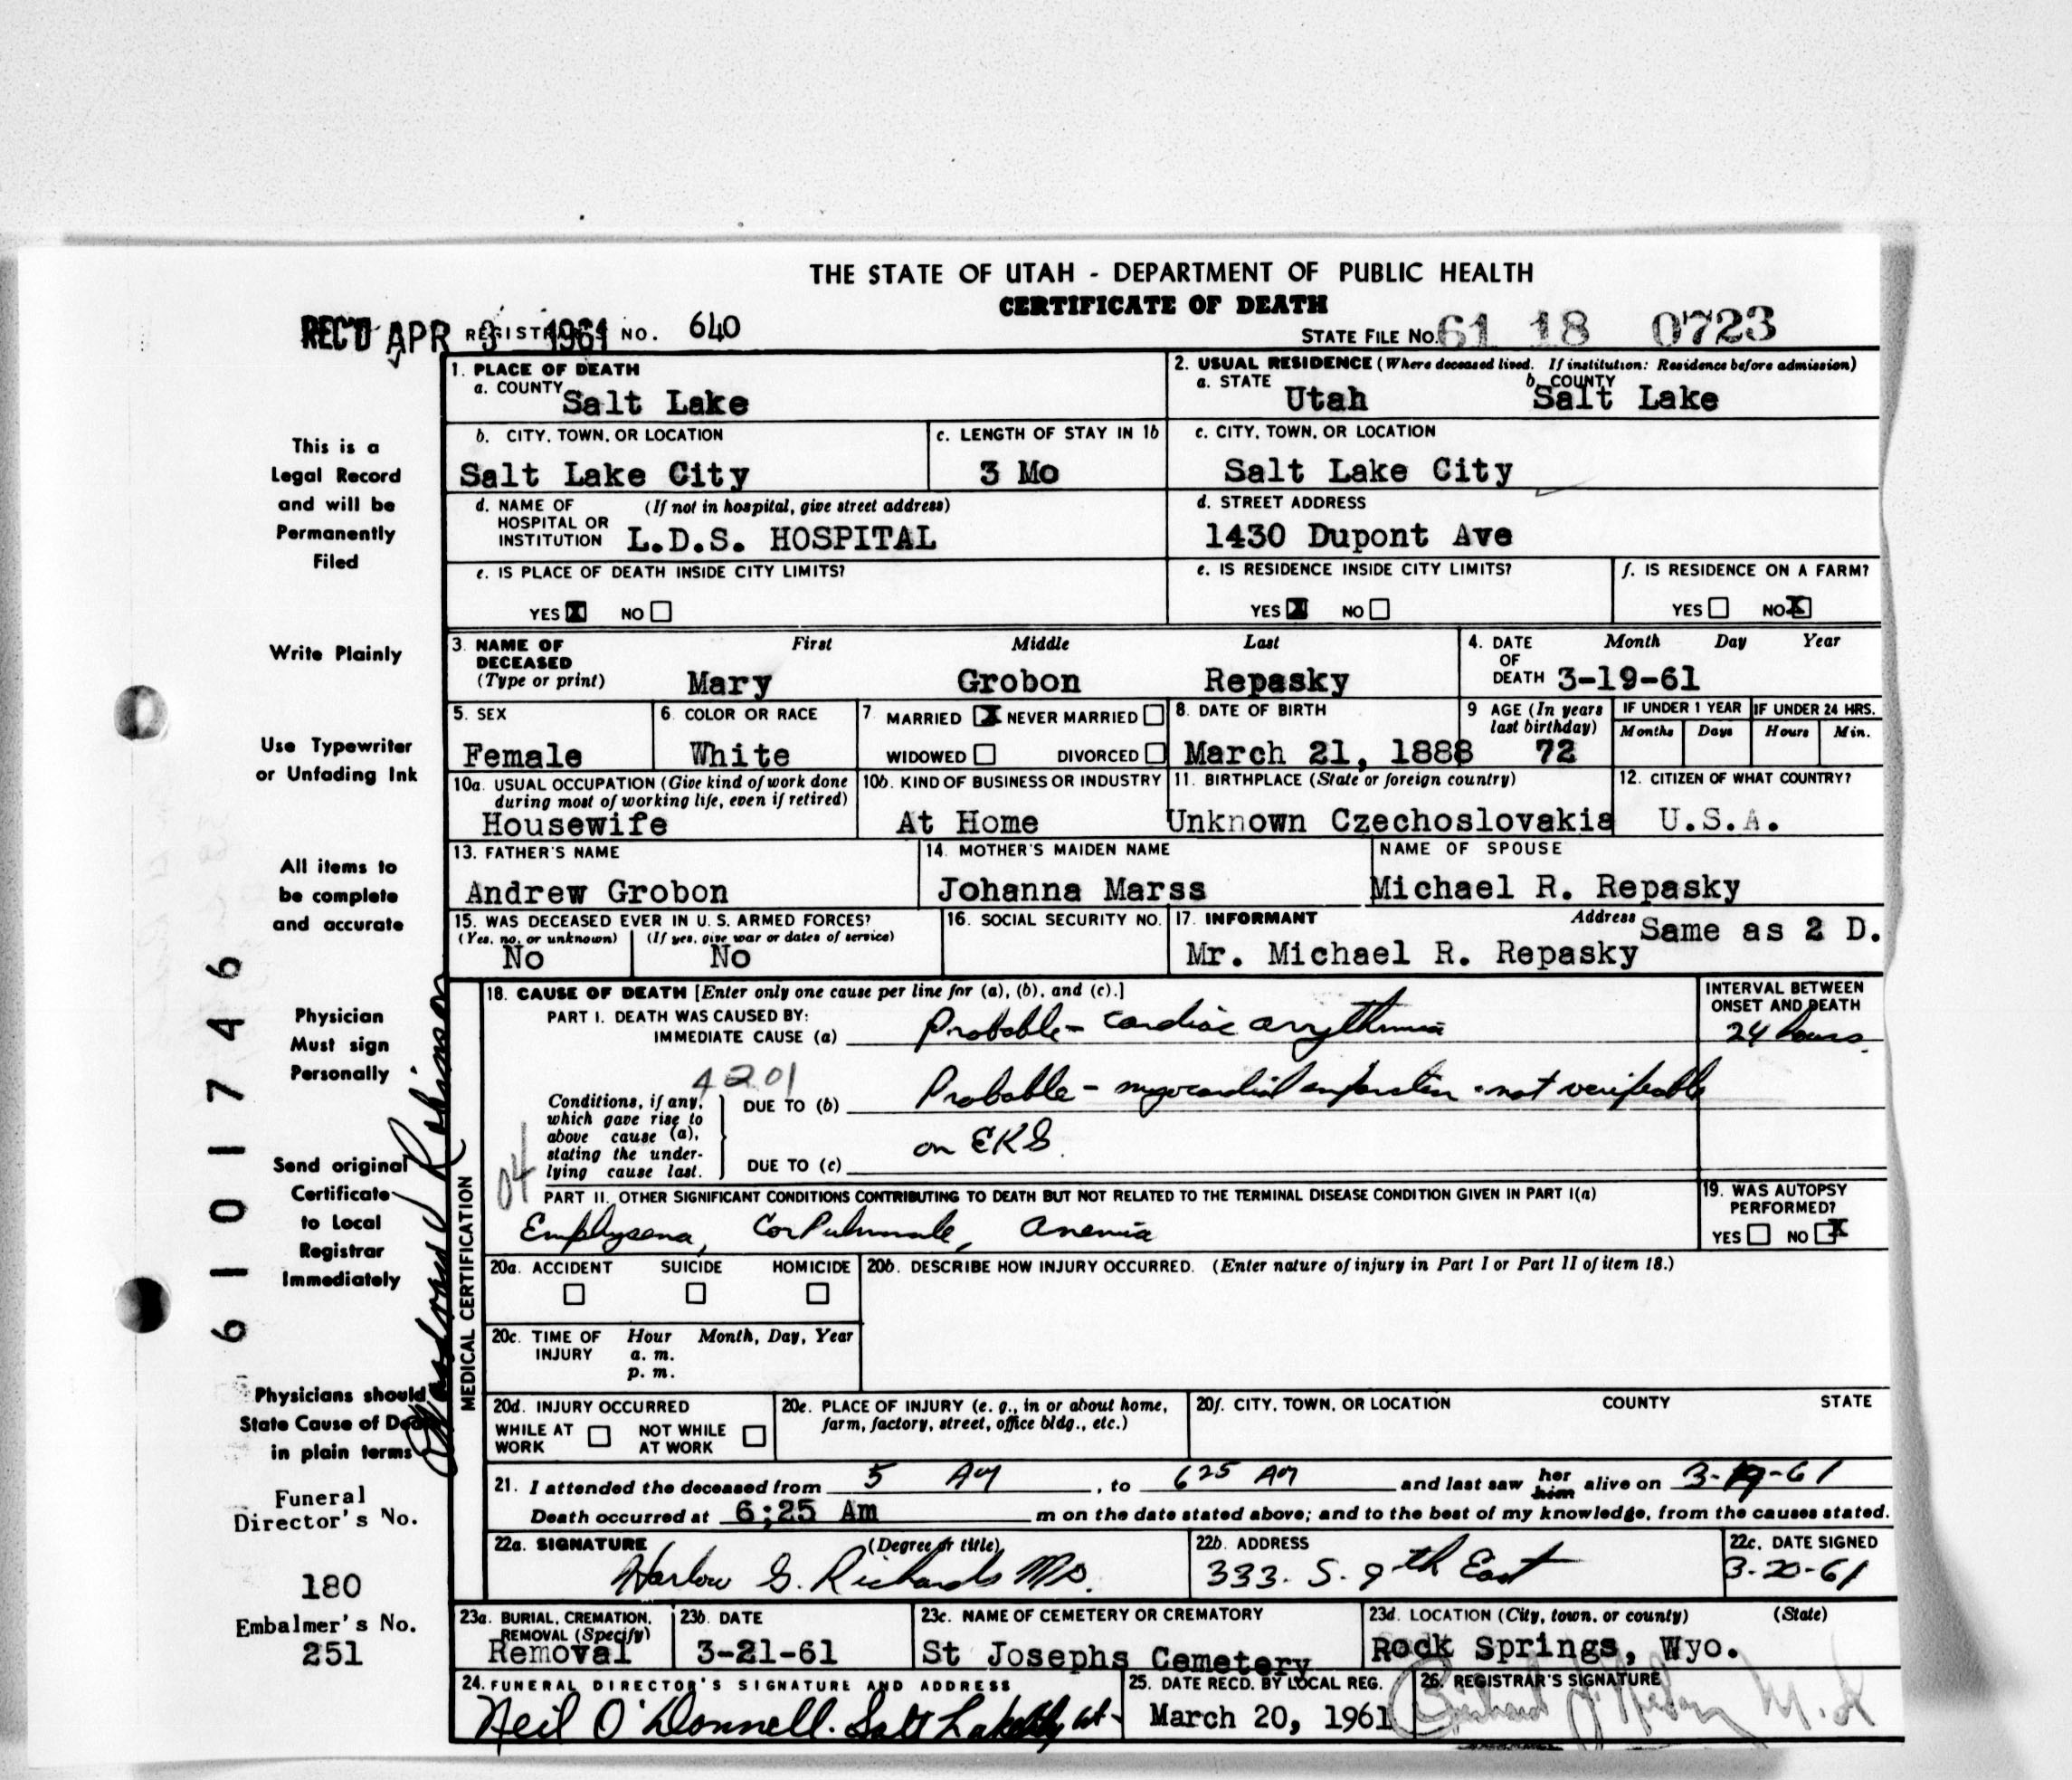 THE STATE OF UTAH - DEPARTMENT OF PUBLIC HEALTH
CERTIFICATE OF DEATH
REC'D APR 3 1961 REGISTRAR'S NO. 640
STATE FILE NO. 61 18 0723
1. PLACE OF DEATH
a. COUNTY Salt Lake
2. USUAL RESIDENCE (Where deceased lived. If institution: Residence before admission)
a. STATE Utah b. COUNTY Salt Lake
b. CITY, TOWN, OR LOCATION Salt Lake City
c. LENGTH OF STAY IN 1b 3 Mo
c. CITY, TOWN, OR LOCATION Salt Lake City
d. NAME OF HOSPITAL OR INSTITUTION (If not in hospital, give street address) L.D.S. HOSPITAL
d. STREET ADDRESS 1430 Dupont Ave
e. IS PLACE OF DEATH INSIDE CITY LIMITS?
YES X NO
e. IS RESIDENCE INSIDE CITY LIMITS?
YES X NO
f. IS RESIDENCE ON A FARM?
YES NO X
3. NAME OF DECEASED (Type or print) First Middle Last
Mary Grobon Repasky
4. DATE OF DEATH Month Day Year
3-19-61
5. SEX Female
6. COLOR OR RACE White
7. MARRIED X NEVER MARRIED
WIDOWED DIVORCED
8. DATE OF BIRTH March 21, 1888
9 AGE (In years last birthday) 72
IF UNDER 1 YEAR Months Days
IF UNDER 24 HRS. Hours Min.
10a. USUAL OCCUPATION (Give kind of work done during most of working life, even if retired)
Housewife
10b. KIND OF BUSINESS OR INDUSTRY
At Home
11. BIRTHPLACE (State or foreign country)
Unknown Czechoslovakia
12. CITIZEN OF WHAT COUNTRY?
U.S.A.
13. FATHER'S NAME
Andrew Grobon
14. MOTHER'S MAIDEN NAME
Johanna Marss
NAME OF SPOUSE
Michael R. Repasky
15. WAS DECEASED EVER IN U.S. ARMED FORCES?
(Yes, no, or unknown) No (If yes, give war or dates of service) No
16. SOCIAL SECURITY NO.
17. INFORMANT Address Same as 2 D.
Mr. Michael R. Repasky
MEDICAL CERTIFICATION
18. CAUSE OF DEATH [Enter only one cause per line for (a), (b), and (c).]
INTERVAL BETWEEN ONSET AND DEATH
PART I. DEATH WAS CAUSED BY:
IMMEDIATE CAUSE (a) Probable - cardiac arrythmia 24 hours
4201
Conditions, if any, which gave rise to above cause (a), stating the underlying cause last.
DUE TO (b) Probable - myocardial infarction - not verifiable
on EKG
DUE TO (c)
04
PART II. OTHER SIGNIFICANT CONDITIONS CONTRIBUTING TO DEATH BUT NOT RELATED TO THE TERMINAL DISEASE CONDITION GIVEN IN PART I(a)
Emphysema, Cor Pulmonale, Anemia
19. WAS AUTOPSY PERFORMED?
YES NO X
20a. ACCIDENT SUICIDE HOMICIDE
20b. DESCRIBE HOW INJURY OCCURRED. (Enter nature of injury in Part I or Part II of item 18.)
20c. TIME OF INJURY Hour Month, Day, Year
a. m.
p. m.
20d. INJURY OCCURRED
WHILE AT WORK NOT WHILE AT WORK
20e. PLACE OF INJURY (e. g., in or about home, farm, factory, street, office bldg., etc.)
20f. CITY, TOWN, OR LOCATION COUNTY STATE
21. I attended the deceased from 5 AM, to 6 25 AM and last saw her him alive on 3-19-61
Death occurred at 6;25 Am m on the date stated above; and to the best of my knowledge, from the causes stated.
22a. SIGNATURE (Degree or title)
Harlow G. Richards MD.
22b. ADDRESS
333. S. 9th East
22c. DATE SIGNED
3-20-61
23a. BURIAL, CREMATION, REMOVAL (Specify)
Removal
23b. DATE
3-21-61
23c. NAME OF CEMETERY OR CREMATORY
St Josephs Cemetery
23d. LOCATION (City, town, or county) (State)
Rock Springs, Wyo.
24. FUNERAL DIRECTOR'S SIGNATURE AND ADDRESS
Neil O'Donnell. Salt Lake City Ut-
25. DATE RECD. BY LOCAL REG.
March 20, 1961
26. REGISTRAR'S SIGNATURE
This is a
Legal Record
and will be
Permanently
Filed
Write Plainly
Use Typewriter
or Unfading Ink
All items to
be complete
and accurate
Physician
Must sign
Personally
Send original
Certificate
to Local
Registrar
Immediately
Physicians should
State Cause of Death
in plain terms
Funeral
Director's No.
180
Embalmer's No.
251
6101746
Robinson